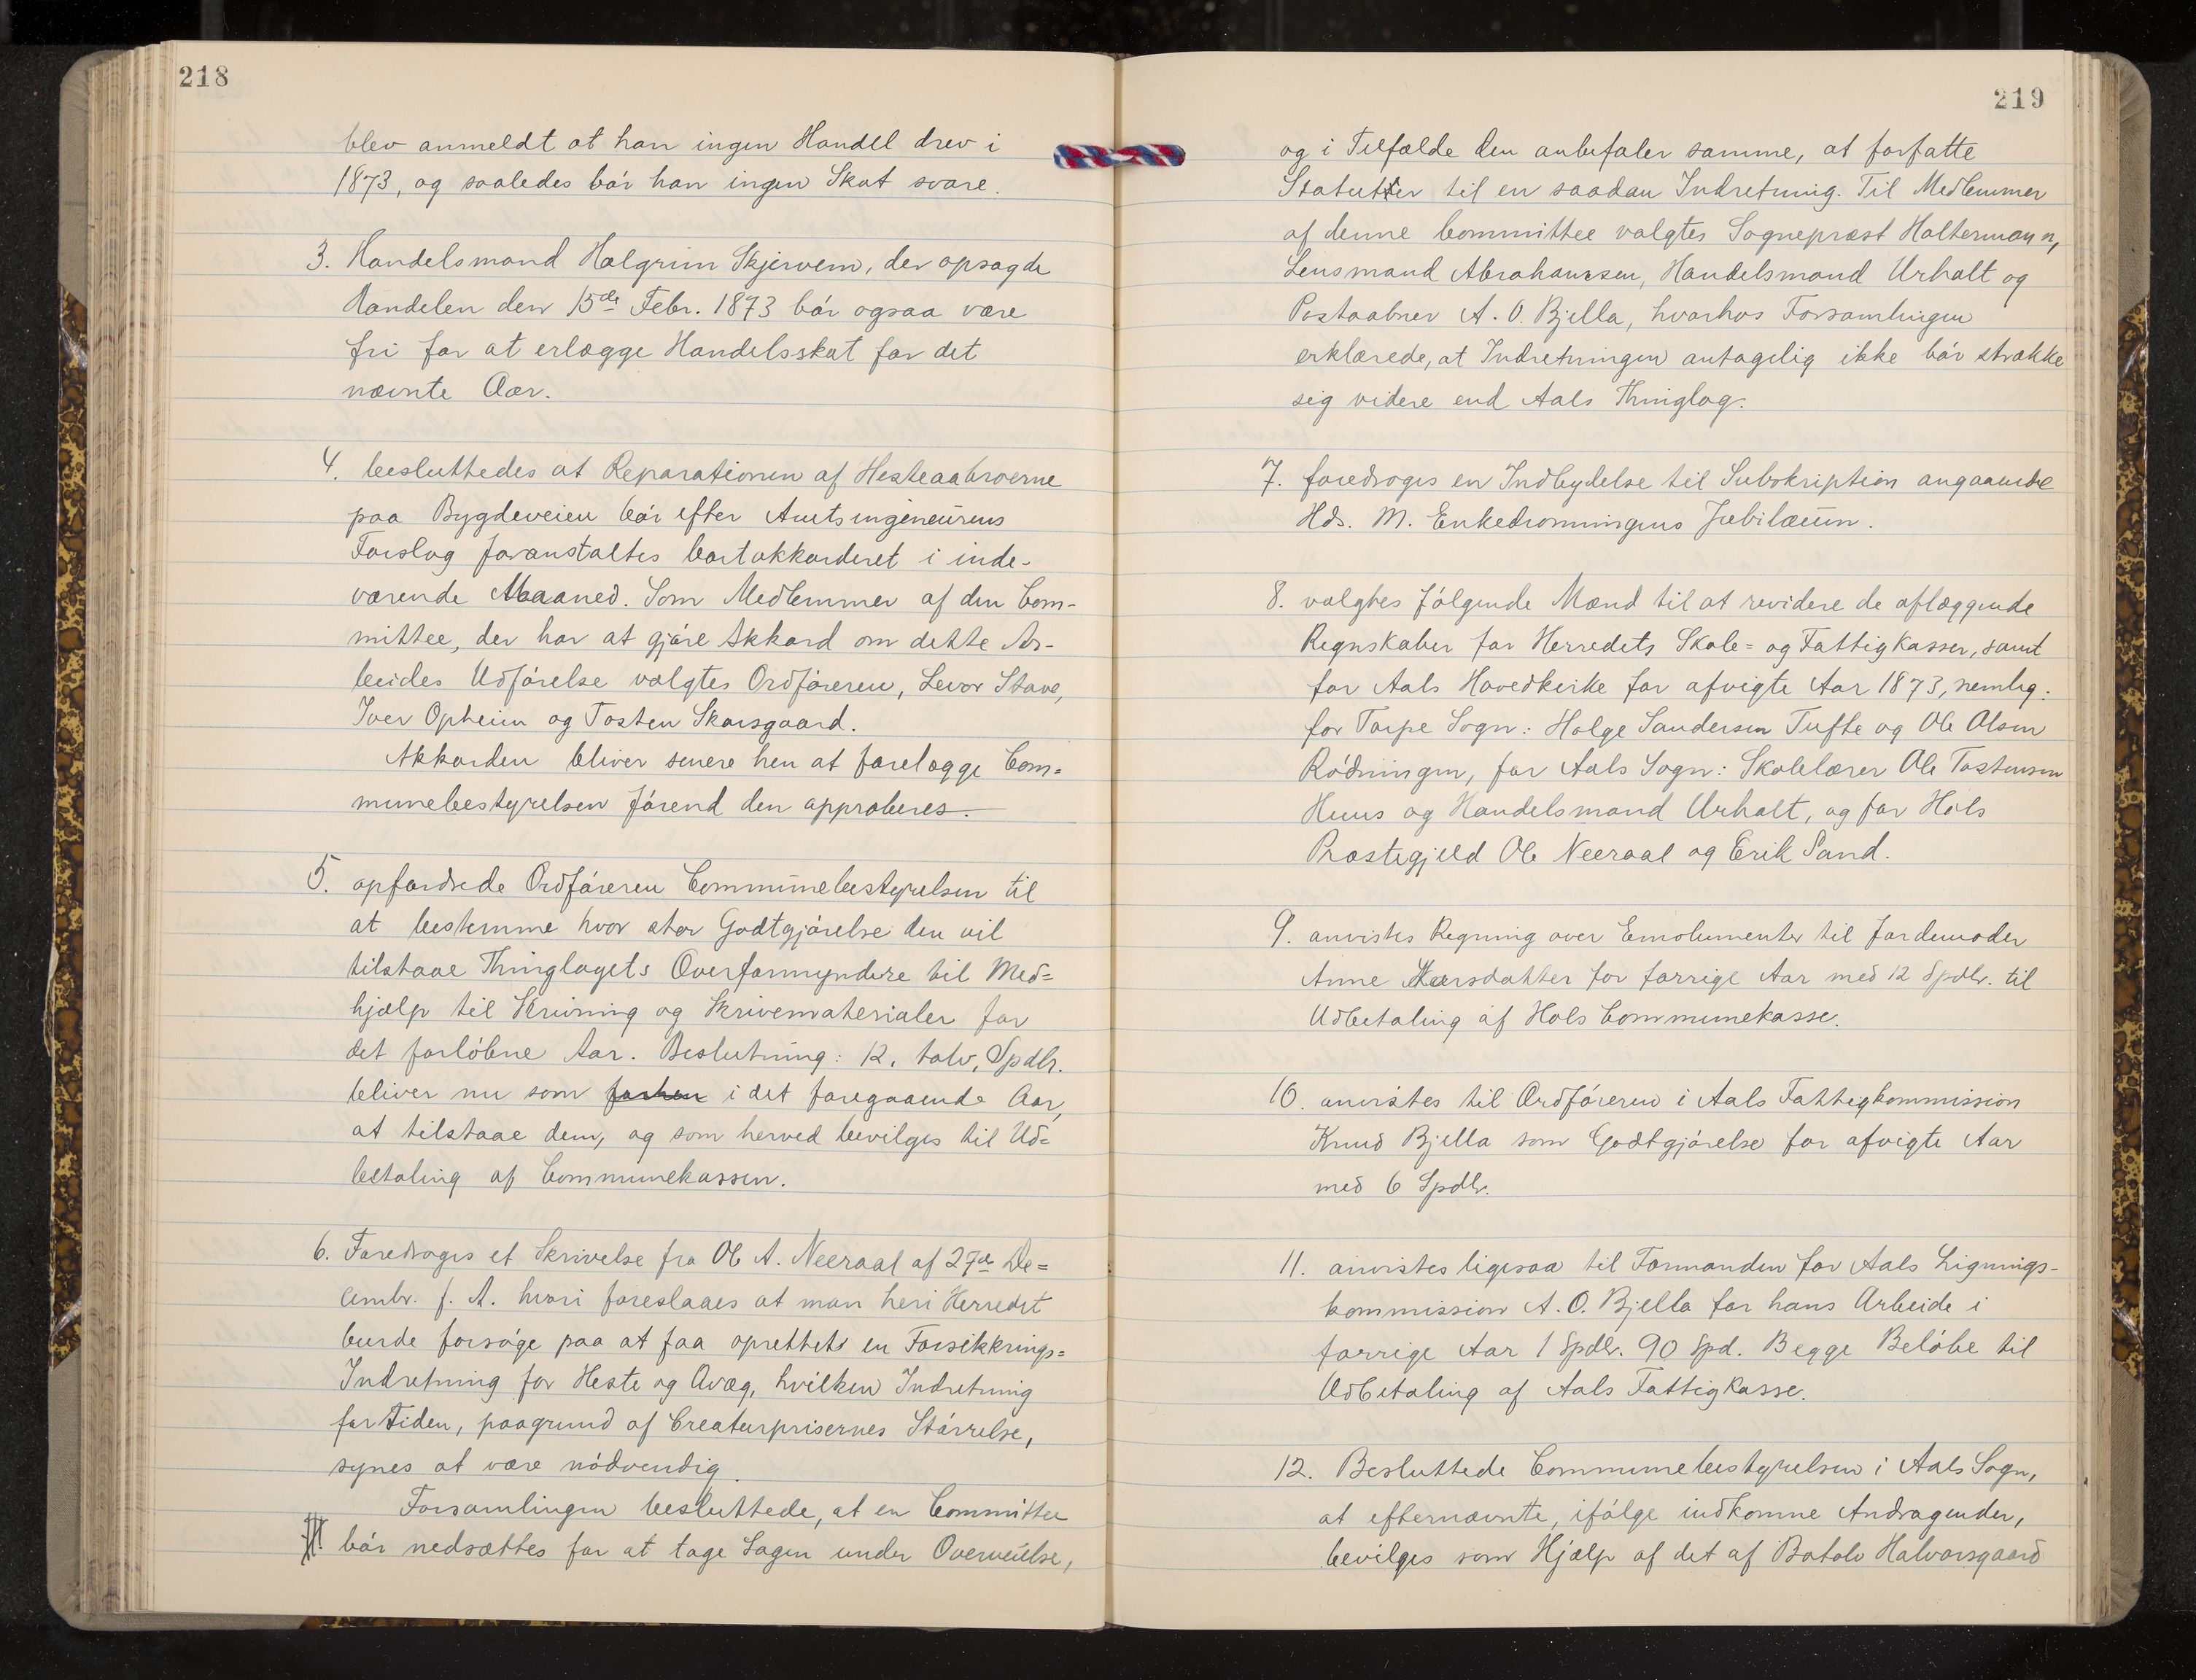 218
blev anmeldt at han ingen Handel drev i
1873, og saaledes bør han ingen Skat svare.
3. Handelsmand Halgrim Skjervem, der opsagde
Handelen den 15de Febr. 1873 bør ogsaa være
fri for at erlægge Handelsskat for det
nævnte Aar.
4. besluttedes at Reparationen af Hesteaabroerne
paa Bygdeveien bør efter Amtsingeneurens
Forslag foranstaltes bortakkorderet i inde-
værende Maaned. Som Medlemmer af den Com-
mittee, der har at gjøre Akkord om dette Ar-
beides Udførelse valgtes Ordføreren, Levor Stave,
Iver Opheim og Tosten Skarsgaard.
Akkorden bliver senere hen at forelægge Com=
munebestyrelsen førend den approberes.
5. opfordrede Ordføreren Communebestyrelsen til
at bestemme hvor stor Godtgjørelse den vil
tilstaae Thinglagets Overformyndere til Med=
hjælp til Skrivning og Skrivematerialer for
det forløbne Aar. Beslutning: 12, tolv, Spdlr.
bliver nu som forhen i det foregaaende Aar,
at tilstaae dem, og som herved bevilges til Ud=
betaling af Communekassen.
6. Foredroges et Skrivelse fra Ole A. Neeraal af 27de De=
cembr. f. A. hvori foreslaaes at man heri Herredet
burde forsøge paa at faa oprettet en Forsikkrings=
Indretning for Heste og Qvæg, hvilken Indretning
for Tiden, paagrund af Creaturprisernes Størrelse,
synes at være nødvendig.
Forsamlingen besluttede, at en Committee
bør nedsættes for at tage Sagen under Overveielse,
219
og i Tilfælde den anbefaler samme, at forfatte
Statutter til en saadan Indretning. Til Medlemmer
af denne Committee valgtes Sognepræst Haltermann,
Lensmand Abrahamsen, Handelsmand Urhalt og
Postaabner A. O. Bjella, hvorhos Forsamlingen
erklærede, at Indretningen antagelig ikke bør strække
sig videre end Aals Thinglag.
7. foredroges en Indbydelse til Subskription angaaende
Hds. M. Enkedronningens Jubilæum.
8. valgtes følgende Mænd til at revidere de aflæggende
Regnskaber for Herredets Skole= og Fattigkasser, samt
for Aals Hovedkirke for afvigte Aar 1873, nemlig:
for Torpe Sogn: Holge Sandersen Tufte og Ole Olsen
Rødningen, for Aals Sogn: Skolelærer Ole Tostensen
Huus og Handelsmand Urhalt, og for Hols
Præstegjeld Ole Neeraal og Erik Sand.
9. anvistes Regning over Emolumenter til Jordemoder
Anne Larsdatter for forrige Aar med 12 Spdlr. til
Udbetaling af Hols Communekasse.
10. anvistes til Ordføreren i Aals Fattigkommission
Knud Bjella som Godtgjørelse for afvigte Aar
med 6 Spdlr.
11. anvistes ligesaa til Formanden for Aals Lignings-
kommission A. O. Bjella for hans Arbeide i
forrige Aar 1 Spdlr. 90 Spd. Begge Beløbe til
Udbetaling af Aals Fattigkasse.
12. Besluttede Communebestyrelsen i Aals Sogn,
at efternævnte, ifølge indkomne Andragender,
bevilges som Hjælp af det af Botolv Halvorsgaard